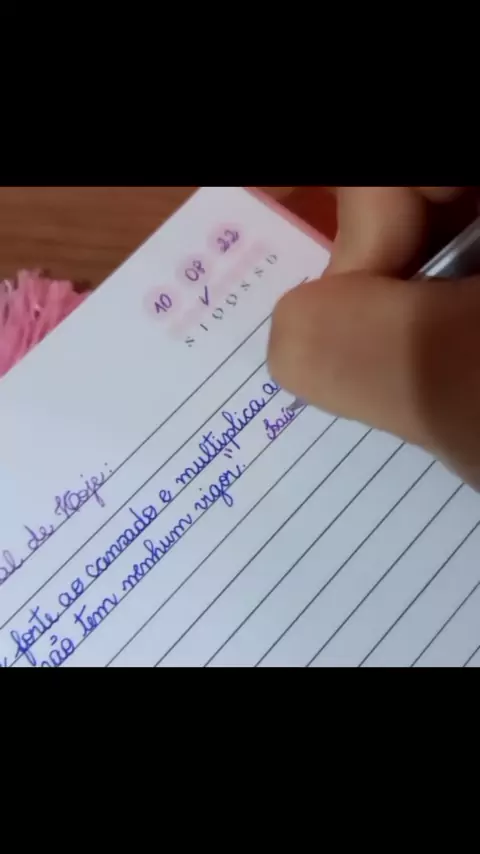 10 08 22
S T Q Q S S D
al de Hoje:
forte ao cansado e multiplica a
não tem nenhum vigor."